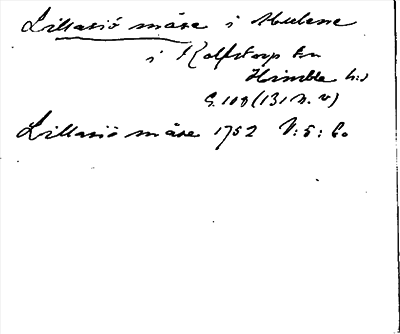 Lillasiö måse i Mulene
i Rolfstorp sn
Himble h:d
S. 108 (131 n. v)
Lillasiö måse 1752 V: 5: 6.